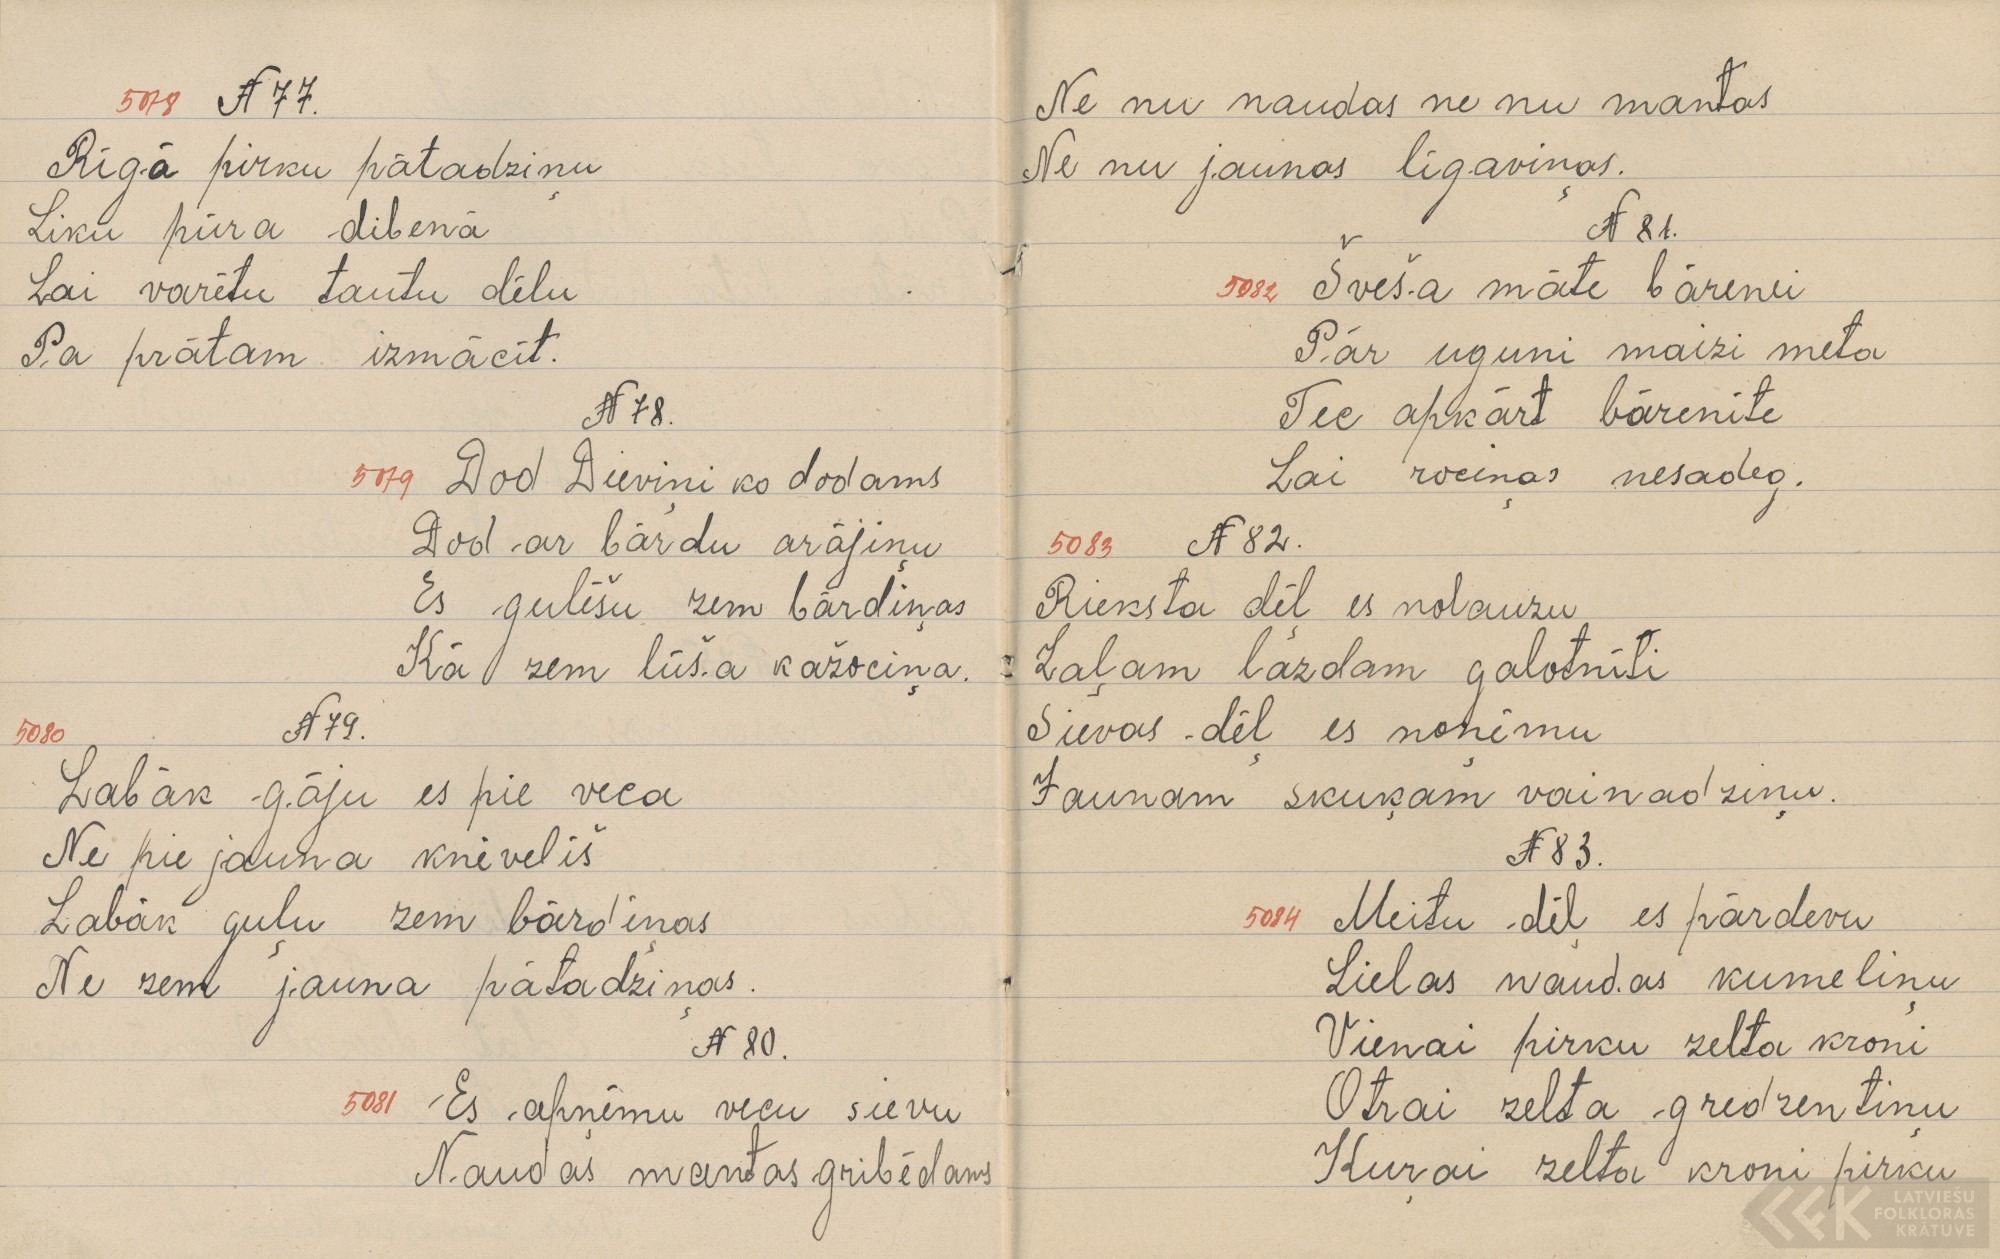 5078 № 77.
Rīgā pirku pātadziņu
Liku pūra dibenā
Lai varētu tautu dēlu
Pa prātam izmācīt.
№ 78.
5079 Dod Dieviņi ko dodams
Dod ar bārdu arājiņu
Es gulēšu zem bārdiņas
Kā zem lūša kažociņa.
5080 № 79.
Labāk gāju es pie veca
Ne pie jauna knēvelīš
Labāk guļu zem bārdiņas
Ne zem jauna pātadziņas.
№ 80.
5081 Es apņēmu vecu sievu
Naudas mantas gribēdams
Ne nu naudas ne nu mantas
Ne nu jaunas līgaviņas.
№ 81.
5082 Šveša māte bārenei
Pār uguni maizi meta
Tec apkārt bārenīte
Lai rociņas nesadeg.
5083 № 82.
Rieksta dēļ es nolauzu
Zaļam lazdam galotnīti
Sievas dēļ es noņēmu
Jaunam skuķam vainadziņu.
№ 83.
5084 Meitu dēļ es pārdevu
Lielas naudas kumeliņu
Vienai pirku zelta kroni
Otrai zelta gredzentiņu
Kuŗai zelta kroni pirku
LATVIEŠU
FOLKLORAS
KRĀTUVE